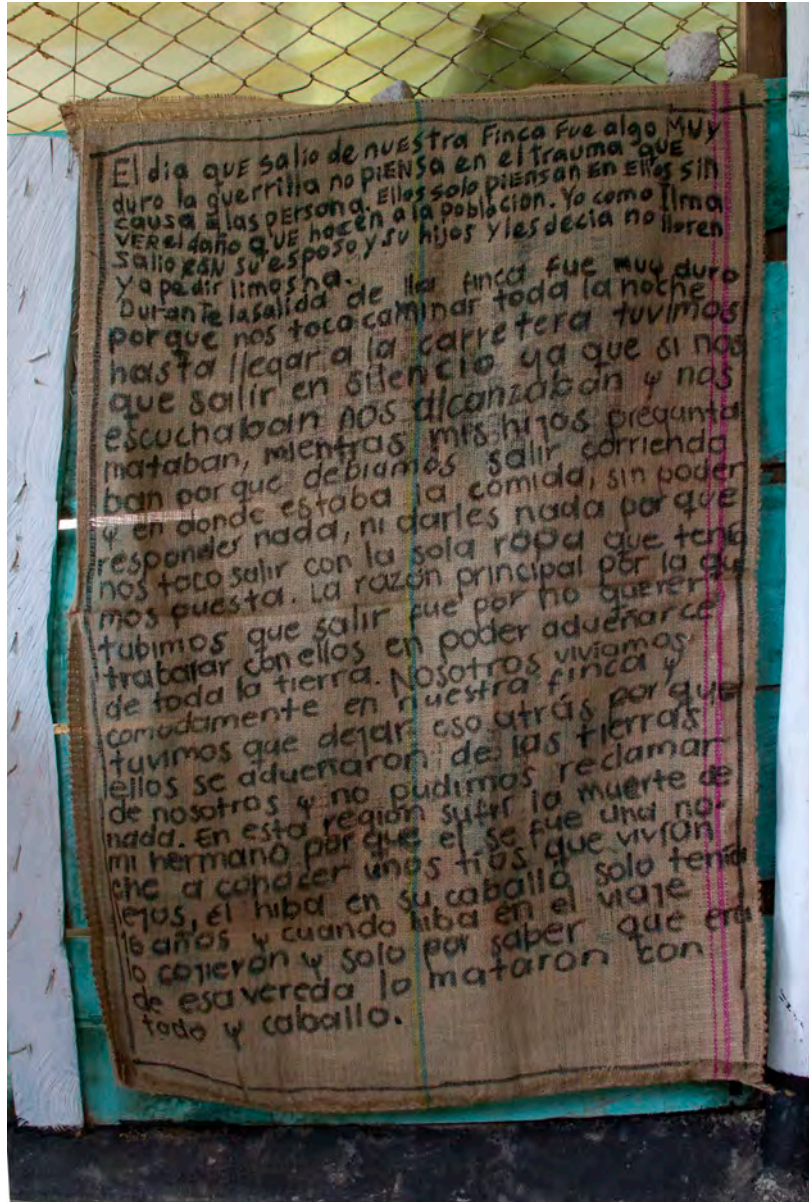 El dia qUE salio de nUEStra Finca Fue algo MUY
duro la guerrilla no piENSA en el trauma qUE
causa a las pERsona. Ellos solo piENSan En Ellos sin
VER el daño qUE hacen a la poblacion. Yo como Ilma
salio con su esposo y su hijos y les decia no lloren
y a pedir limosna.
Durante la salida de lla finca fue muy duro
porque nos toco caminar toda la noche
hasta llegar a la carretera tuvimos
que salir en silencio ya que si nos
escuchaban nos alcanzaban y nos
mataban, mientras mis hijos pregunta
ban porque debiamos salir corriendo
y en donde estaba la comida, sin poder
responder nada, ni darles nada porque
nos toco salir con la sola ropa que tenía
mos puesta. La razón principal por la qu
tubimos que salir fue por no querer
trabajar con ellos en poder adueñarce
de toda la tierra. Nosotros viviamos
comodamente en nuestra finca y
tuvimos que dejar eso atrás porque
ellos se adueñaron de las tierras
de nosotros y no pudimos reclamar
nada. En esta región sufrir la muerte de
mi hermano por que el se fue una no-
che a conocer unos tíos que vivían
lejos, él hiba en su caballo solo tenía
16 años y cuando hiba en el viaje
lo cojieron y solo por saber que era
de esa vereda lo mataron con
todo y caballo.